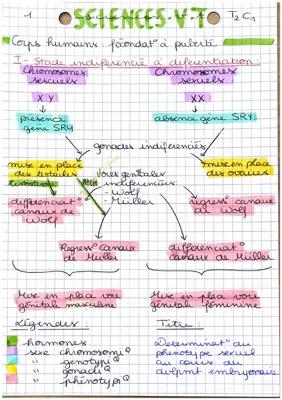 1 SCIENCES.V.T T2C1
Corps humains fécondat° à puberté
I - Stade indiférencié à diferentiation:
Chromosomes sexuels
Chromosomes sexuels
XY
XX
présence gène SRY
absence gène SRY
gonades indiférenciés
mise en place des testicules
testostérone
voies génitales indiférenciées
- Wolf
- Müller
mise en place des ovaires
differenciat° canaux de Wolf
régress° canaux de Wolf
Régress° canaux de Müller
differenciat° canaux de Müller
Mise en place voie génitale masculine
Mise en place voie génitale féminine
Légendes:
Titre:
hormones
sexe chromosomiQ
" génotypiQ
" gonadiQ
" phénotypiQ
Determinat° du phénotype sexuel au cours du dvlpmt embryonnaire